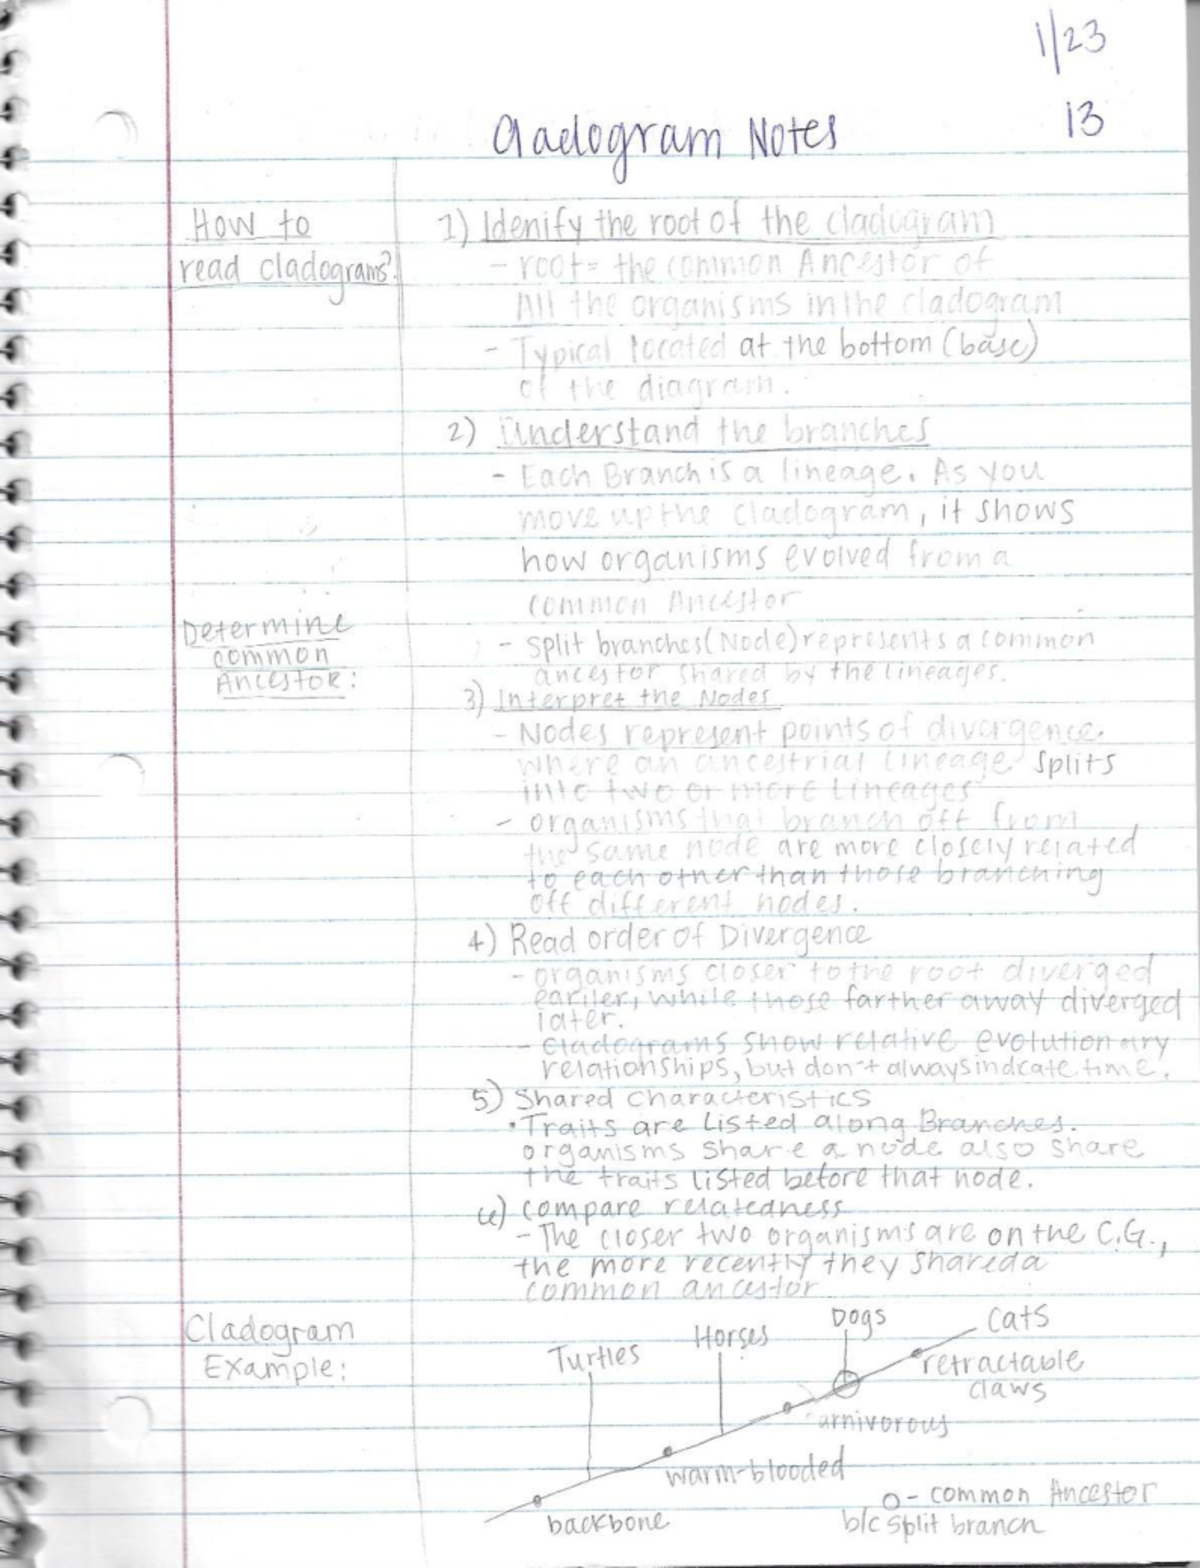 1/23
13
Cladogram Notes
How to
read cladograms?
1) Idenify the root of the cladogram
- root = the common Ancestor of
All the organisms in the cladogram
- Typical located at the bottom (base)
of the diagram.
2) Understand the branches
- Each Branch is a lineage. As you
move up the cladogram, it shows
how organisms evolved from a
common Ancestor
Determine
common
Ancestor:
- split branches (Node) represents a common
ancestor shared by the lineages.
3) Interpret the Nodes
- Nodes represent points of divergence
where an ancestrial lineage splits
into two or more lineages
- organisms that branch off from
the same node are more closely related
to each other than those branching
off different nodes.
4) Read order of Divergence
- organisms closer to the root diverged
eariler, while those farther away diverged
later.
- cladograms show relative evolutionary
relationships, but don't always indicate time.
5) Shared characteristics
• Traits are listed along Branches.
organisms share a node also share
the traits listed before that node.
6) compare relatedness
- The closer two organisms are on the C.G.,
the more recently they shared a
common ancestor
Cladogram
Example:
Turtles
Horses
Dogs
Cats
retractable
claws
carnivorous
warm-blooded
backbone
O - common Ancestor
b/c split branch